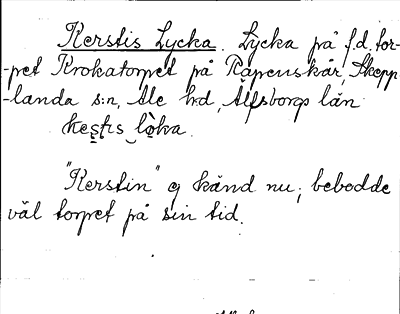 Kerstis Lycka. Lycka på f.d. tor-
-pet Krokatorpet på Rapenskår, Skepp-
-landa s:n, Ale hd, Älfsborgs län
kestis lòka.
"Kerstin" ej känd nu; bebodde
väl torpet på sin tid.